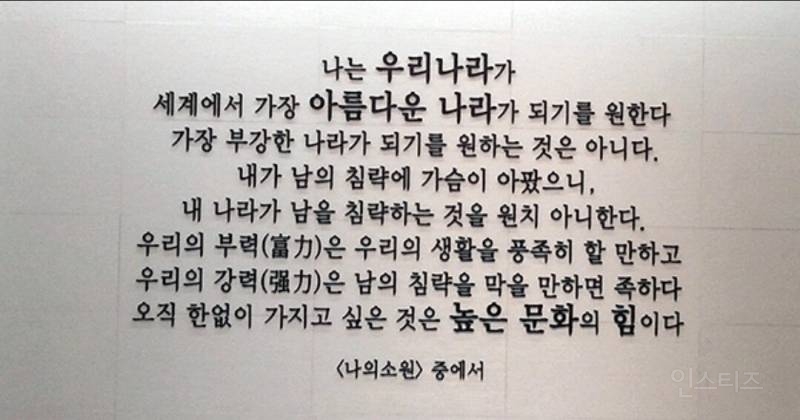 나는 우리나라가
세계에서 가장 아름다운 나라가 되기를 원한다
가장 부강한 나라가 되기를 원하는 것은 아니다.
내가 남의 침략에 가슴이 아팠으니,
내 나라가 남을 침략하는 것을 원치 아니한다.
우리의 부력(富力)은 우리의 생활을 풍족히 할 만하고
우리의 강력(强力)은 남의 침략을 막을 만하면 족하다
오직 한없이 가지고 싶은 것은 높은 문화의 힘이다
〈나의소원〉 중에서
인스티즈